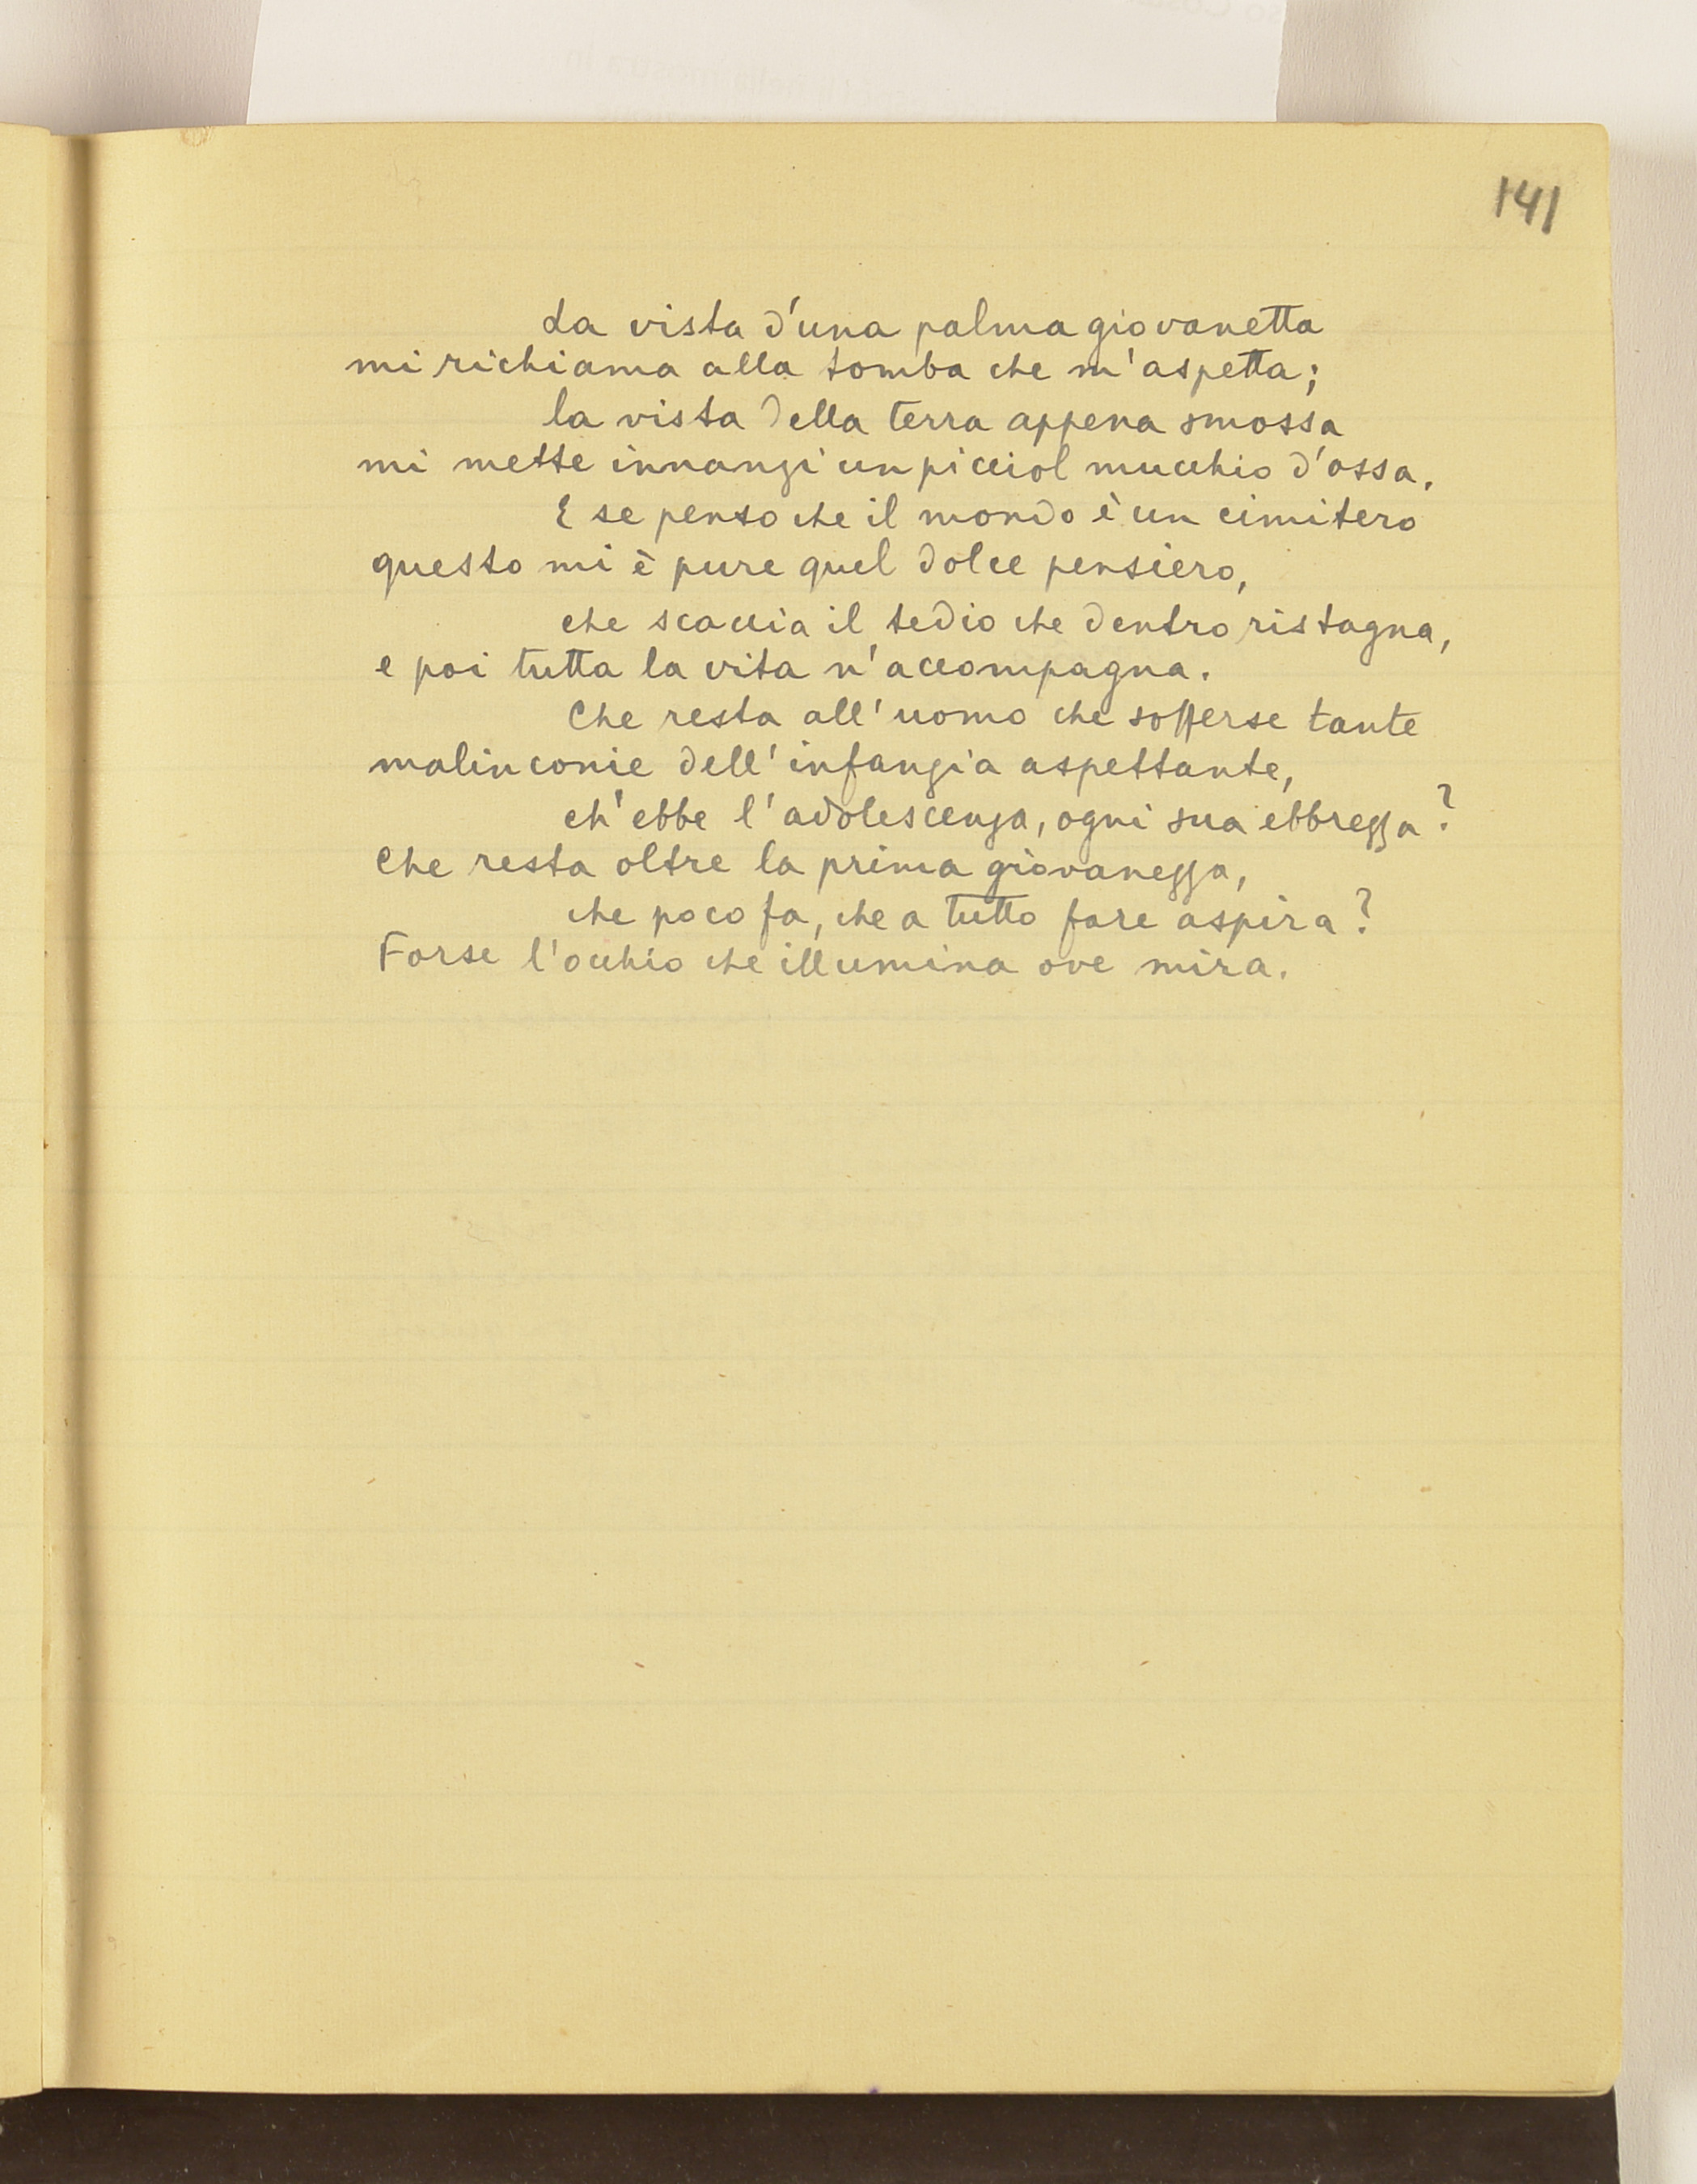 141
La vista d'una palma giovanetta
mi richiama alla tomba che m'aspetta;
la vista della terra appena smossa
mi mette innanzi un picciol mucchio d'ossa.
E se penso che il mondo è un cimitero
questo mi è pure quel dolce pensiero,
che scaccia il tedio che dentro ristagna,
e poi tutta la vita n'accompagna.
Che resta all'uomo che sofferse tante
malinconie dell'infanzia aspettante,
ch'ebbe l'adolescenza, ogni sua ebbrezza?
Che resta oltre la prima giovanezza,
che poco fa, che a tutto fare aspira?
Forse l'occhio che illumina ove mira.